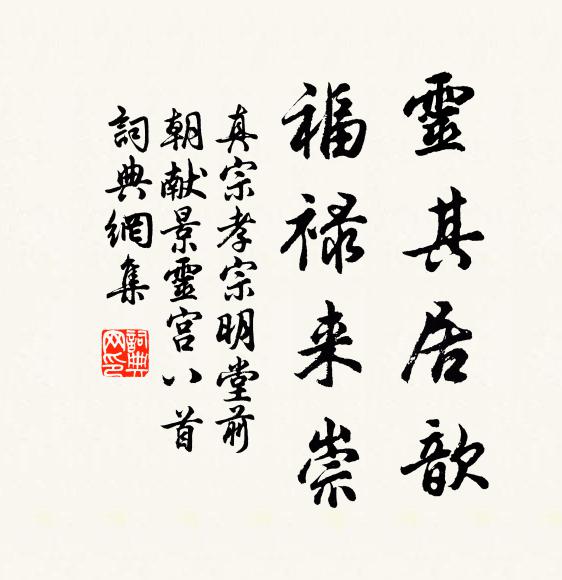 靈其居歆
福禄来崇
真宗孝宗明堂前
朝献景靈宫八首
詞典網集
詞典网印